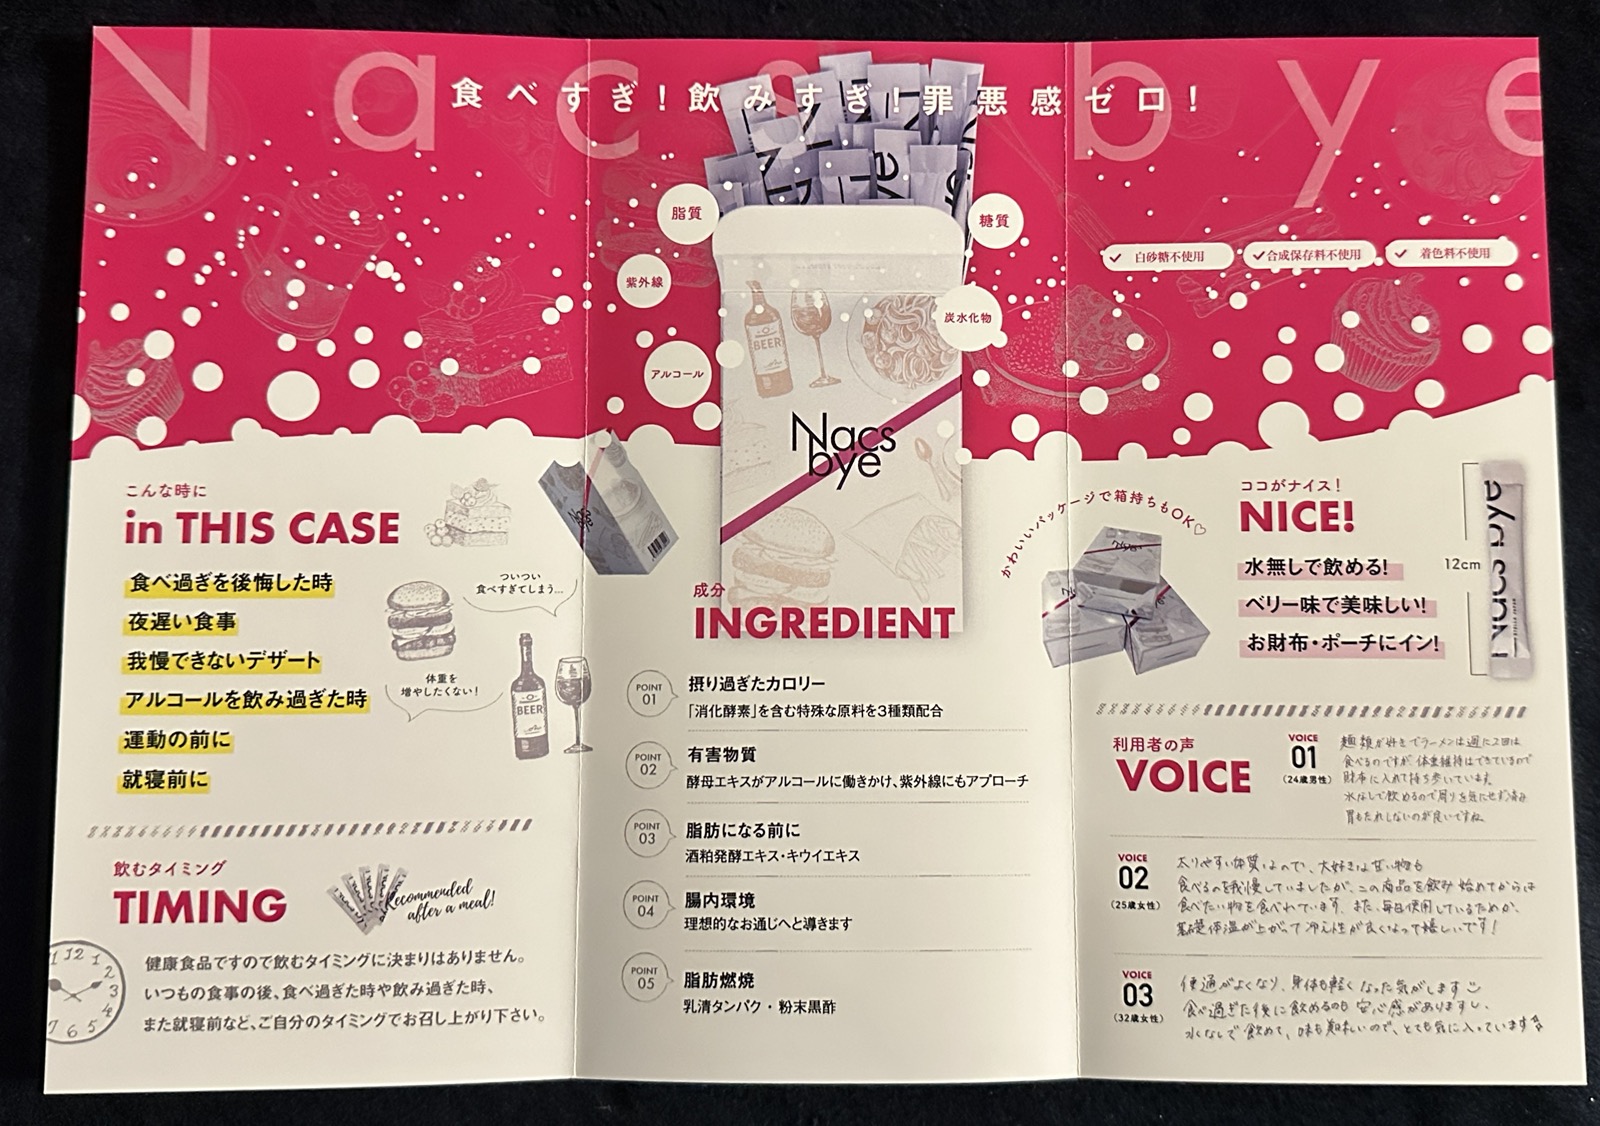 Nacs bye
食べすぎ！飲みすぎ！罪悪感ゼロ！
脂質
糖質
紫外線
炭水化物
アルコール
白砂糖不使用
合成保存料不使用
着色料不使用
BEER
Nacs
bye
こんな時に
in THIS CASE
食べ過ぎを後悔した時
夜遅い食事
我慢できないデザート
アルコールを飲み過ぎた時
運動の前に
就寝前に
ついつい
食べすぎてしまう…
体重を
増やしたくない！
BEER
飲むタイミング
TIMING
Recommended
after a meal!
12 1 2 3 4 5 6 7
健康食品ですので飲むタイミングに決まりはありません。
いつもの食事の後、食べ過ぎた時や飲み過ぎた時、
また就寝前など、ご自分のタイミングでお召し上がり下さい。
成分
INGREDIENT
POINT
01
摂り過ぎたカロリー
「消化酵素」を含む特殊な原料を3種類配合
POINT
02
有害物質
酵母エキスがアルコールに働きかけ、紫外線にもアプローチ
POINT
03
脂肪になる前に
酒粕発酵エキス・キウイエキス
POINT
04
腸内環境
理想的なお通じへと導きます
POINT
05
脂肪燃焼
乳清タンパク・粉末黒酢
かわいいパッケージで箱持ちもOK♡
ココがナイス！
NICE!
水無しで飲める!
ベリー味で美味しい!
お財布・ポーチにイン!
12cm
Nacs bye
利用者の声
VOICE
VOICE
01
（24歳男性）
麺類が好きでラーメンは週に2回は
食べるのですが体重維持はできているので
財布に入れて持ち歩いています。
水なしで飲めるので周りを気にせず済み
胃もたれしないのが良いですね
VOICE
02
（25歳女性）
太りやすい体質なので、大好きな甘い物も
食べるのを我慢していましたが、この商品を飲み始めてからは
食べたい物を食べれています。また、毎日使用しているためか、
基礎体温が上がって冷え性が良くなって嬉しいです！
VOICE
03
（32歳女性）
便通がよくなり、身体も軽くなった気がします
食べ過ぎた後に飲めるのも安心感がありますし、
水なしで飲めて、味も美味しいので、とても気に入っています